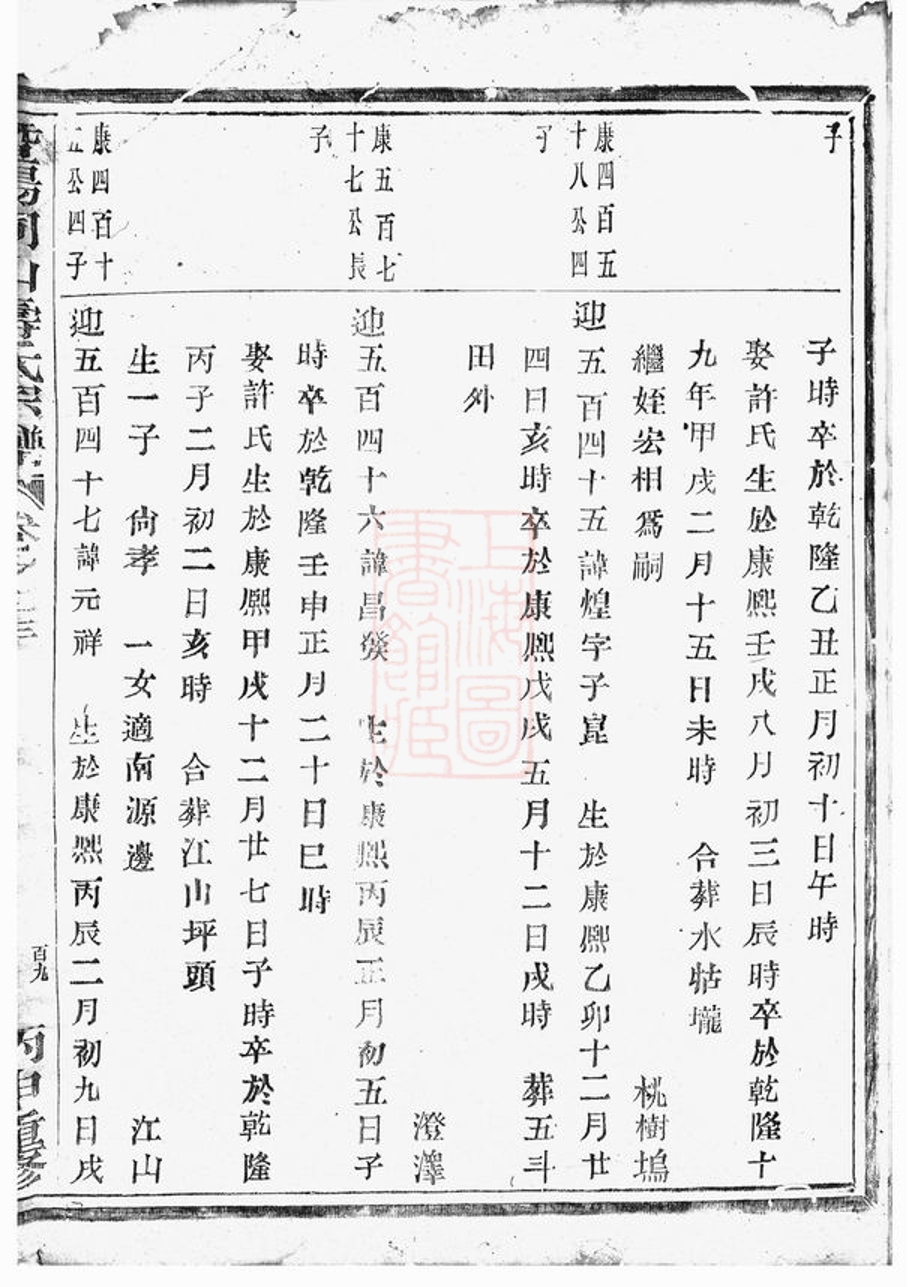 子
子時卒於乾隆乙丑正月初十日午時
娶許氏生於康熙壬戌八月初三日辰時卒於乾隆十
九年甲戌二月十五日未時 合葬水牯壠
繼姪宏相爲嗣 桃樹塢
康四百五
十八公四
子
迎五百四十五諱煌字子崑 生於康熙乙卯十二月廿
四日亥時卒於康熙戊戌五月十二日戌時 葬五斗
田外
澄澤
康五百七
十七公長
子
迎五百四十六諱昌 生於康熙丙辰正月初五日子
時卒於乾隆壬申正月二十日巳時
娶許氏生於康熙甲戌十二月廿七日子時卒於乾隆
丙子二月初二日亥時 合葬江山坪頭
生一子 尙孝 一女適南源邊 江山
康四百十
五公四子
迎五百四十七諱元祥 生於康熙丙辰二月初九日戌
氏宗譜
百九
丙申重修
上海圖
書館藏